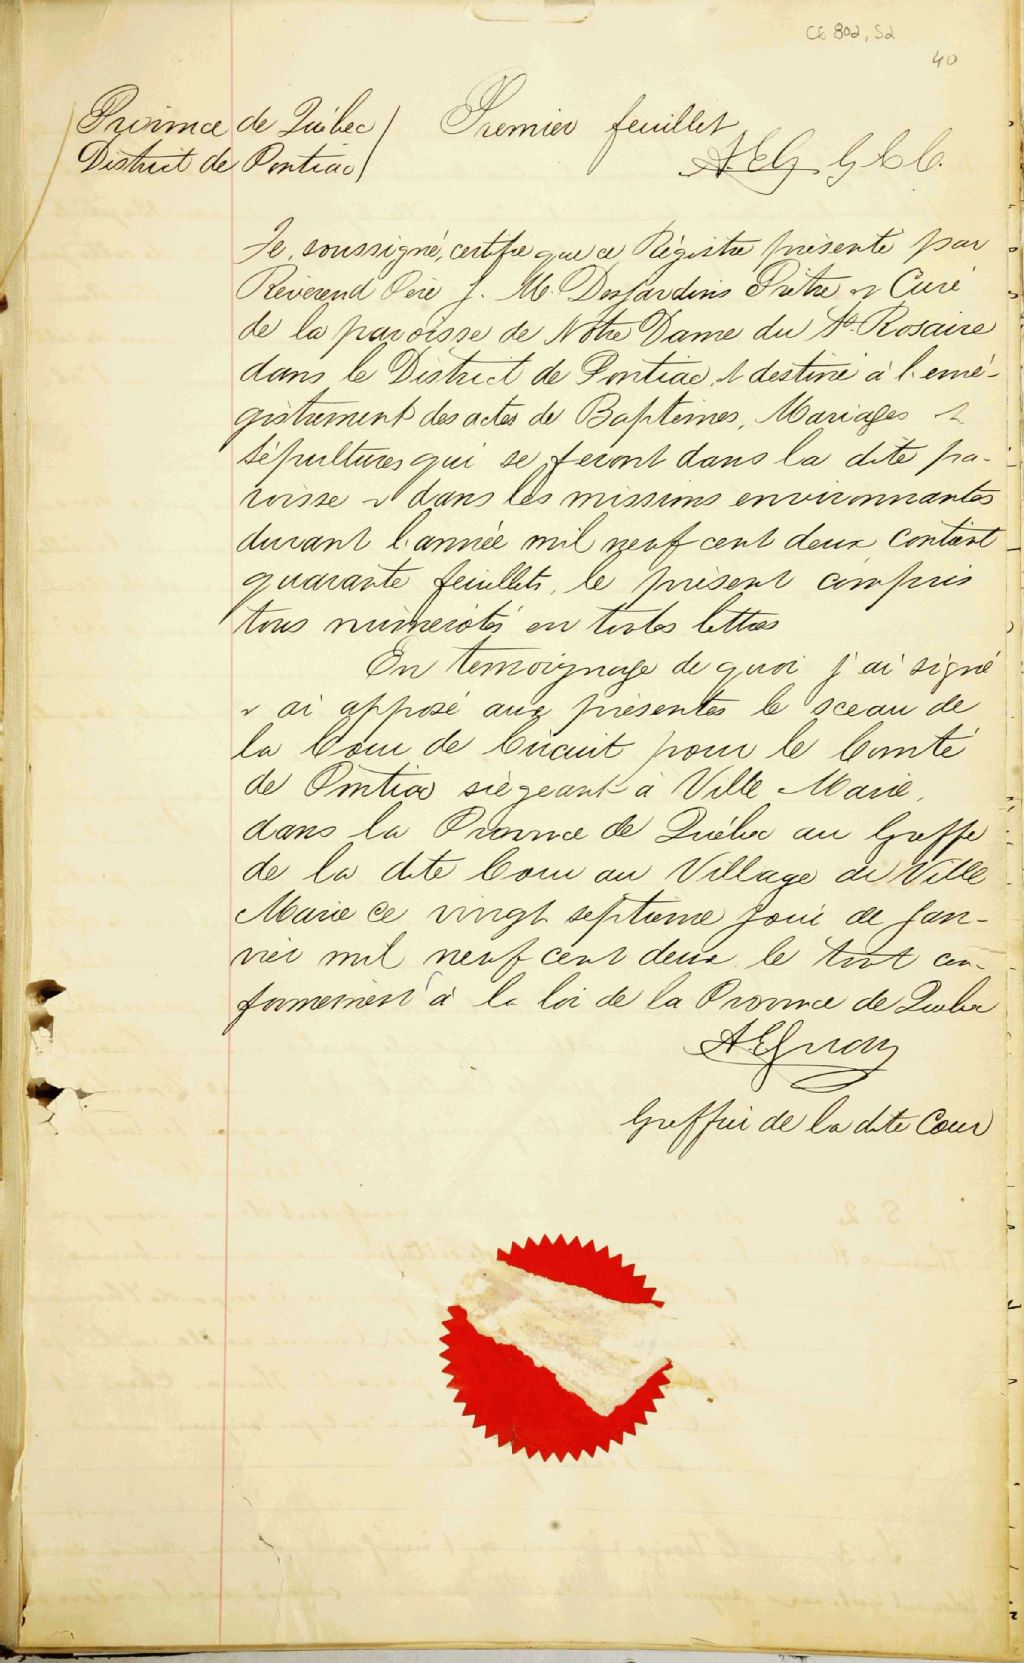 CE 802, S2
40
Province de Québec
District de Pontiac
Premier feuillet
A.E.G. G.C.C.
Je, soussigné, certifie que ce Régistre présenté par
Révérend Père J. M. Desjardins Prêtre & Curé
de la paroisse de Notre Dame du St Rosaire
dans le District de Pontiac, & destiné à l'enré-
gistrement des actes de Baptêmes, Mariages &
sépultures qui se feront dans la dite pa-
roisse & dans les missions environnantes
durant l'année mil neuf cent deux, contient
quarante feuillets, le présent compris
tous numérotés en toutes lettres
En temoignage de quoi j'ai signé
& ai apposé aux présentes le sceau de
la Cour de Circuit pour le Comté
de Pontiac siégeant à Ville Marie,
dans la Province de Québec au Greffe
de la dite Cour au Village de Ville
Marie ce vingt septième jour de Jan-
vier mil neuf cent deux le tout con-
formement à la loi de la Province de Québec
A.E. Guay
Greffier de la dite Cour